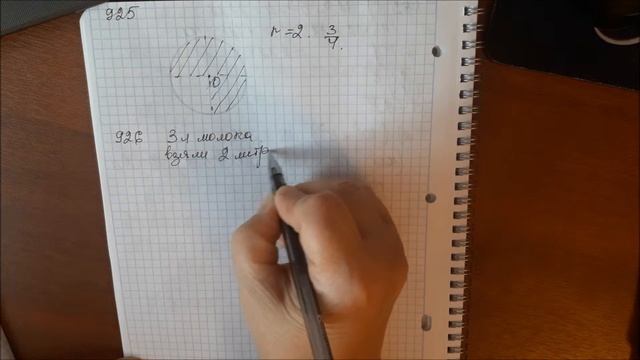 925
r = 2. 3/4.
O
926 3 л молока
взяли 2 литр